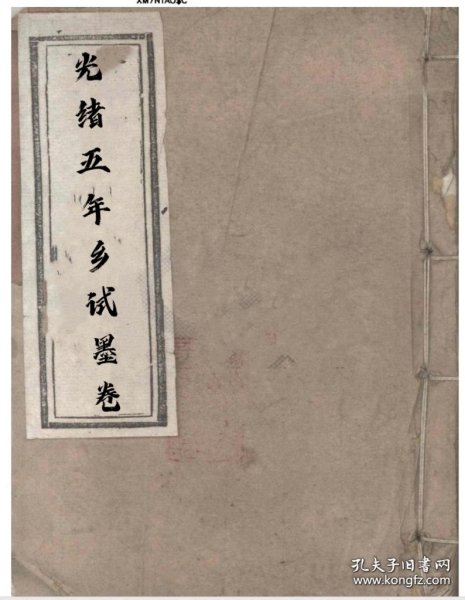 XM7NTAO$C
光绪五年乡试墨卷
孔夫子旧书网
www.kongfz.com